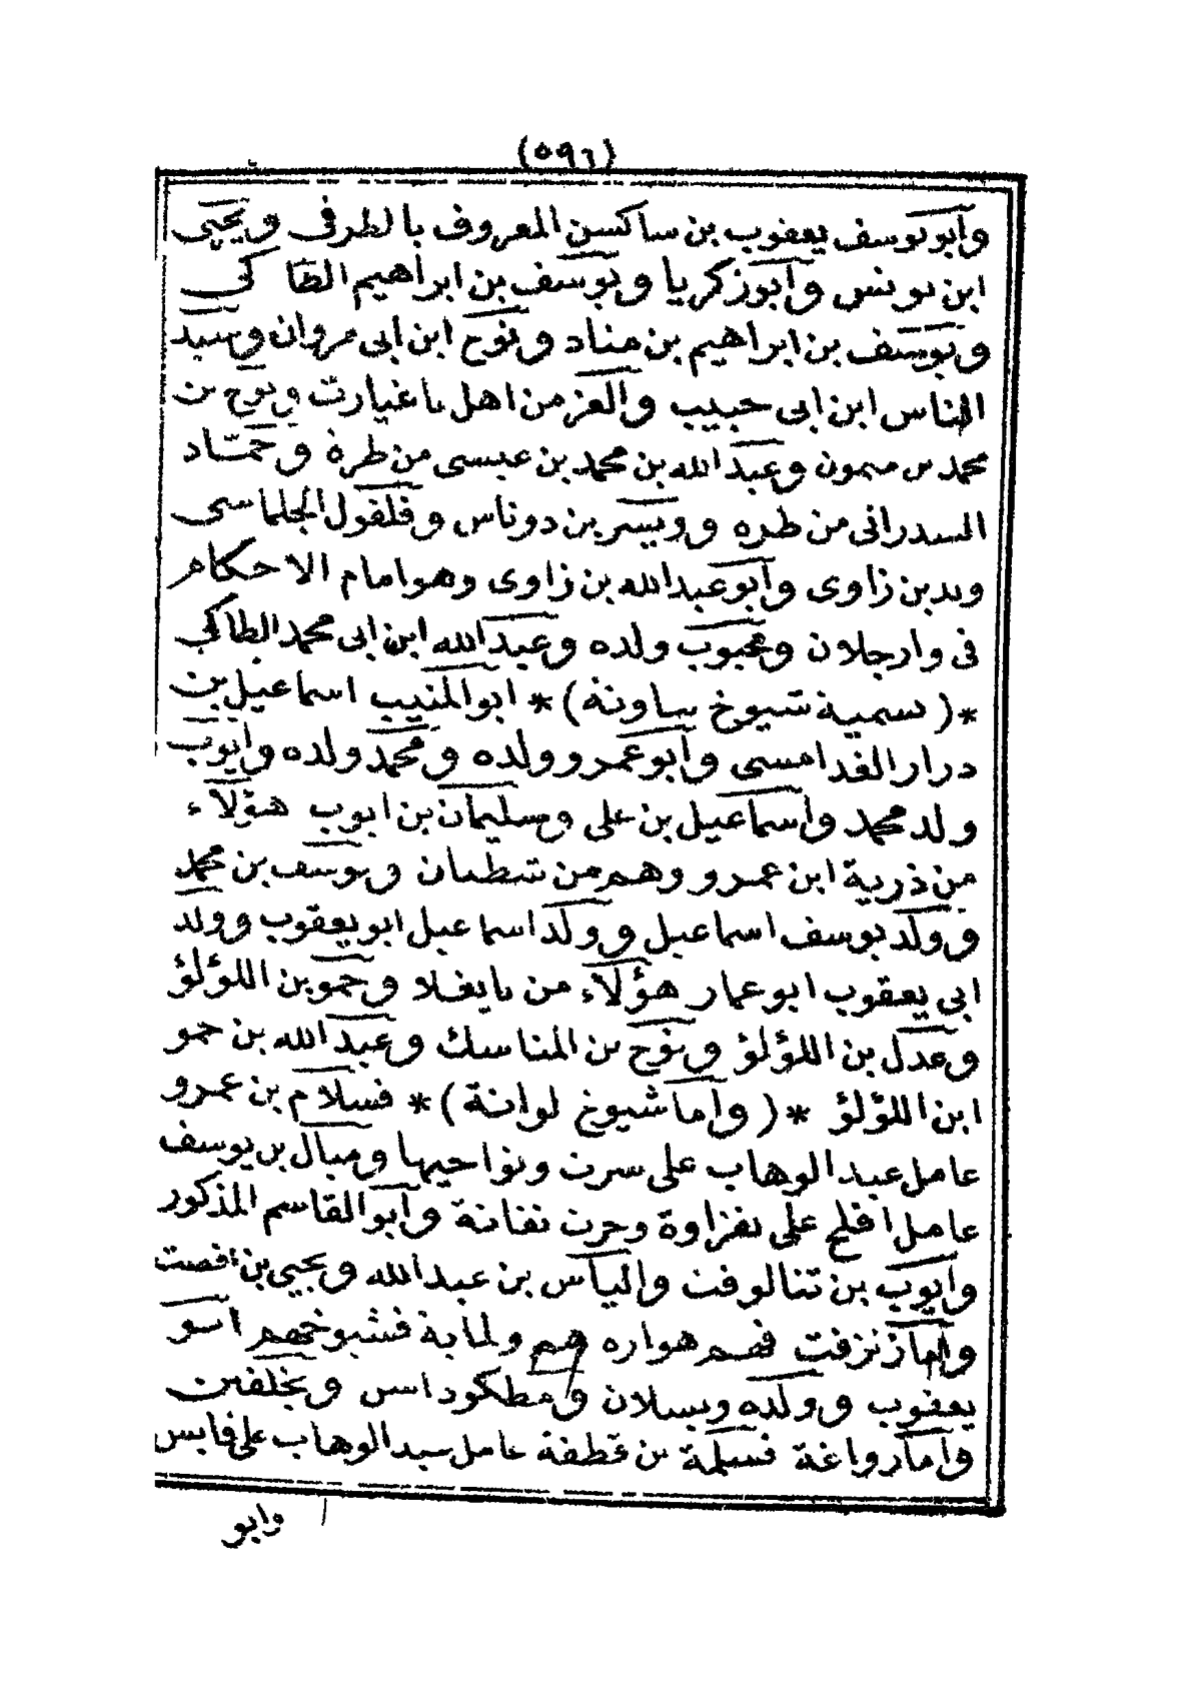 (٥٩٦)
وأبو يوسف يعقوب بن ساكسن المعروف بالطرفى ويحيى
ابن يونس وأبوزكريا ويوسف بن ابراهيم الطاكى
ويوسف بن ابراهيم بن مناد ونوح ابن ابى مروان وسيد
الناس ابن ابى حبيب والعز من اهل باغيارت ونوح بن
محمد بن ميمون وعبد الله بن محمد بن عيسى من طرة وحمّاد
السدرانى من طره وويسر بن دوناس وفلفول الجلماسى
ويد بن زاوى وأبو عبد الله بن زاوى وهو امام الاحكام
فى وارجلان ومحبوب ولده وعبد الله ابن ابى محمد الطاكى
*(تسمية شيوخ ساونة)* ابو المنيب اسماعيل بن
درار الغدامسى وأبو عمرو وولده ومحمد ولده وأيوب
ولد محمد واسماعيل بن على وسليمان بن ايوب هؤلاء
من ذرية ابن عمرو وهم من تنطمان ويوسف بن محمد
وولد يوسف اسماعيل وولد اسماعيل ابو يعقوب وولد
ابى يعقوب ابو عمار هؤلاء من بايغلا وحمو بن اللؤلؤ
وعدل بن اللؤلؤ ونوح بن المناسك وعبد الله بن حمو
ابن اللؤلؤ *(وأما شيوخ لواتة)* فسلام بن عمرو
عامل عبد الوهاب على سرت ونواحيها وميال بن يوسف
عامل افلح على نفزاوة وجرت نفاتة وأبو القاسم المذكور
وأيوب بن تنالوفت والياس بن عبد الله ويحيى بن افصت
وأما زنزفت فهم هواره هم ولماية فشيوخهم ابو
يعقوب وولده ويسلان ومطكوداسن ويخلفتن
وأما زواغة فسلمة بن قطفة عامل عبد الوهاب على قابس
وابو